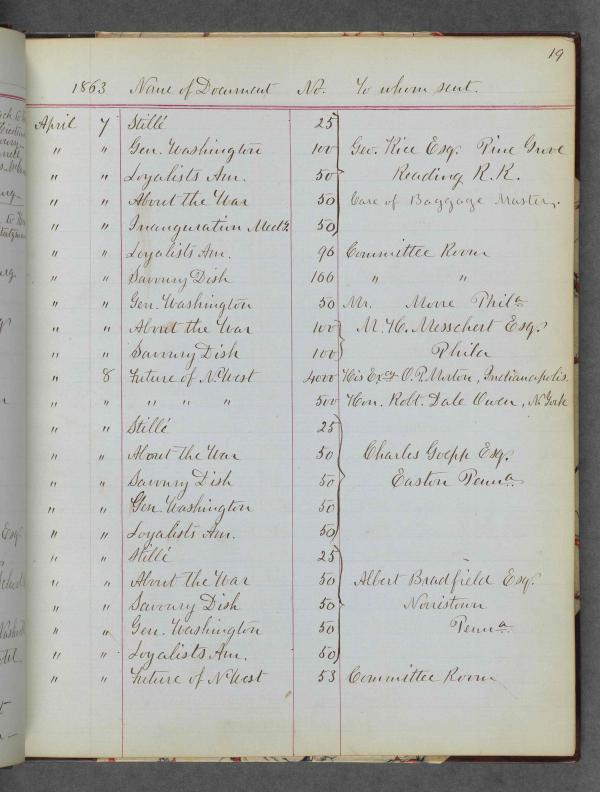 19
1863 Name of Document No. To whom sent.
April 7 Stillé 25
" " Gen. Washington 100 Geo. Rice Esq. Pine Grove
" " Loyalists Am. 50 Reading R.R.
" " About the War 50 Care of Baggage Master.
" " Inauguration Meetg 50
" " Loyalists Am. 96 Committee Room
" " Savoury Dish 166 " "
" " Gen. Washington 50 Mr. Moore Phila
" " About the War 100 M. H. Messchert Esq.
" " Savoury Dish 100 Phila
" 8 Future of N. West 4000 His Excy O. P. Morton, Indianapolis.
" " " " " 500 Hon. Robt. Dale Owen, N. York
" " Stillé 25
" " About the War 50 Charles Goepp Esq.
" " Savoury Dish 50 Easton Penna
" " Gen. Washington 50
" " Loyalists Am. 50
" " Stillé 25
" " About the War 50 Albert Bradfield Esq.
" " Savoury Dish 50 Norristown
" " Gen. Washington 50 Penna
" " Loyalists Am. 50
" " Future of N. West 53 Committee Room